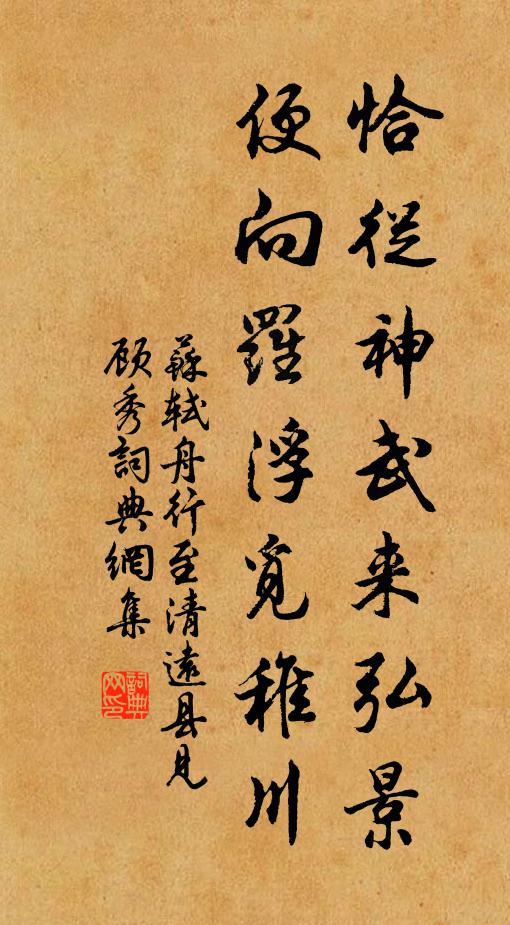 恰從神武来弘景
便向羅浮覓稚川
蘇軾舟行至清遠县見
顾秀詞典網集
詞典
网印